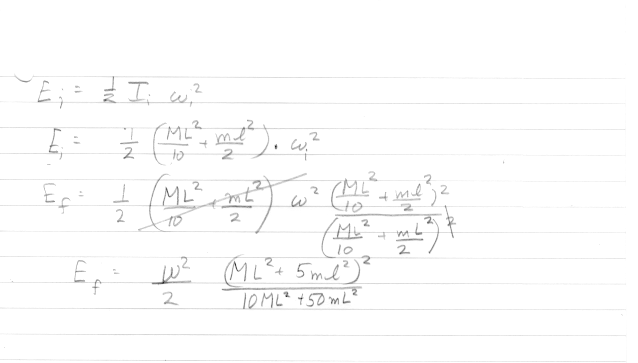 E_i = 1/2 I_i ω_i²
E_i = 1/2 (ML²/10 + ml²/2) · ω_i²
E_f = 1/2 (ML²/10 + mL²/2) ω² (ML²/10 + ml²/2)² / (ML²/10 + mL²/2)²
E_f = ω²/2 (ML² + 5ml²)² / (10ML² + 50mL²)